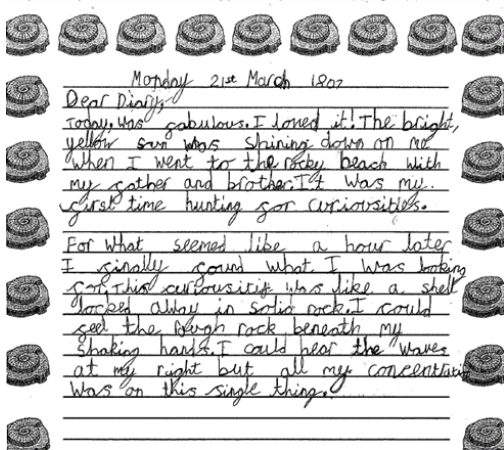 Monday 21st March 1807
Dear Diary,
Today, was fabulous. I loved it! The bright,
yellow sun was shining down on me
when I went to the rocky beach with
my father and brother. It was my
first time hunting for curiousities.
For what seemed like a hour later
I finally found what I was looking
for. This curiousitiy was like a shell
locked away in solid rock. I could
feel the rough rock beneath my
shaking hands. I could hear the waves
at my right but all my concentration
was on this single thing.